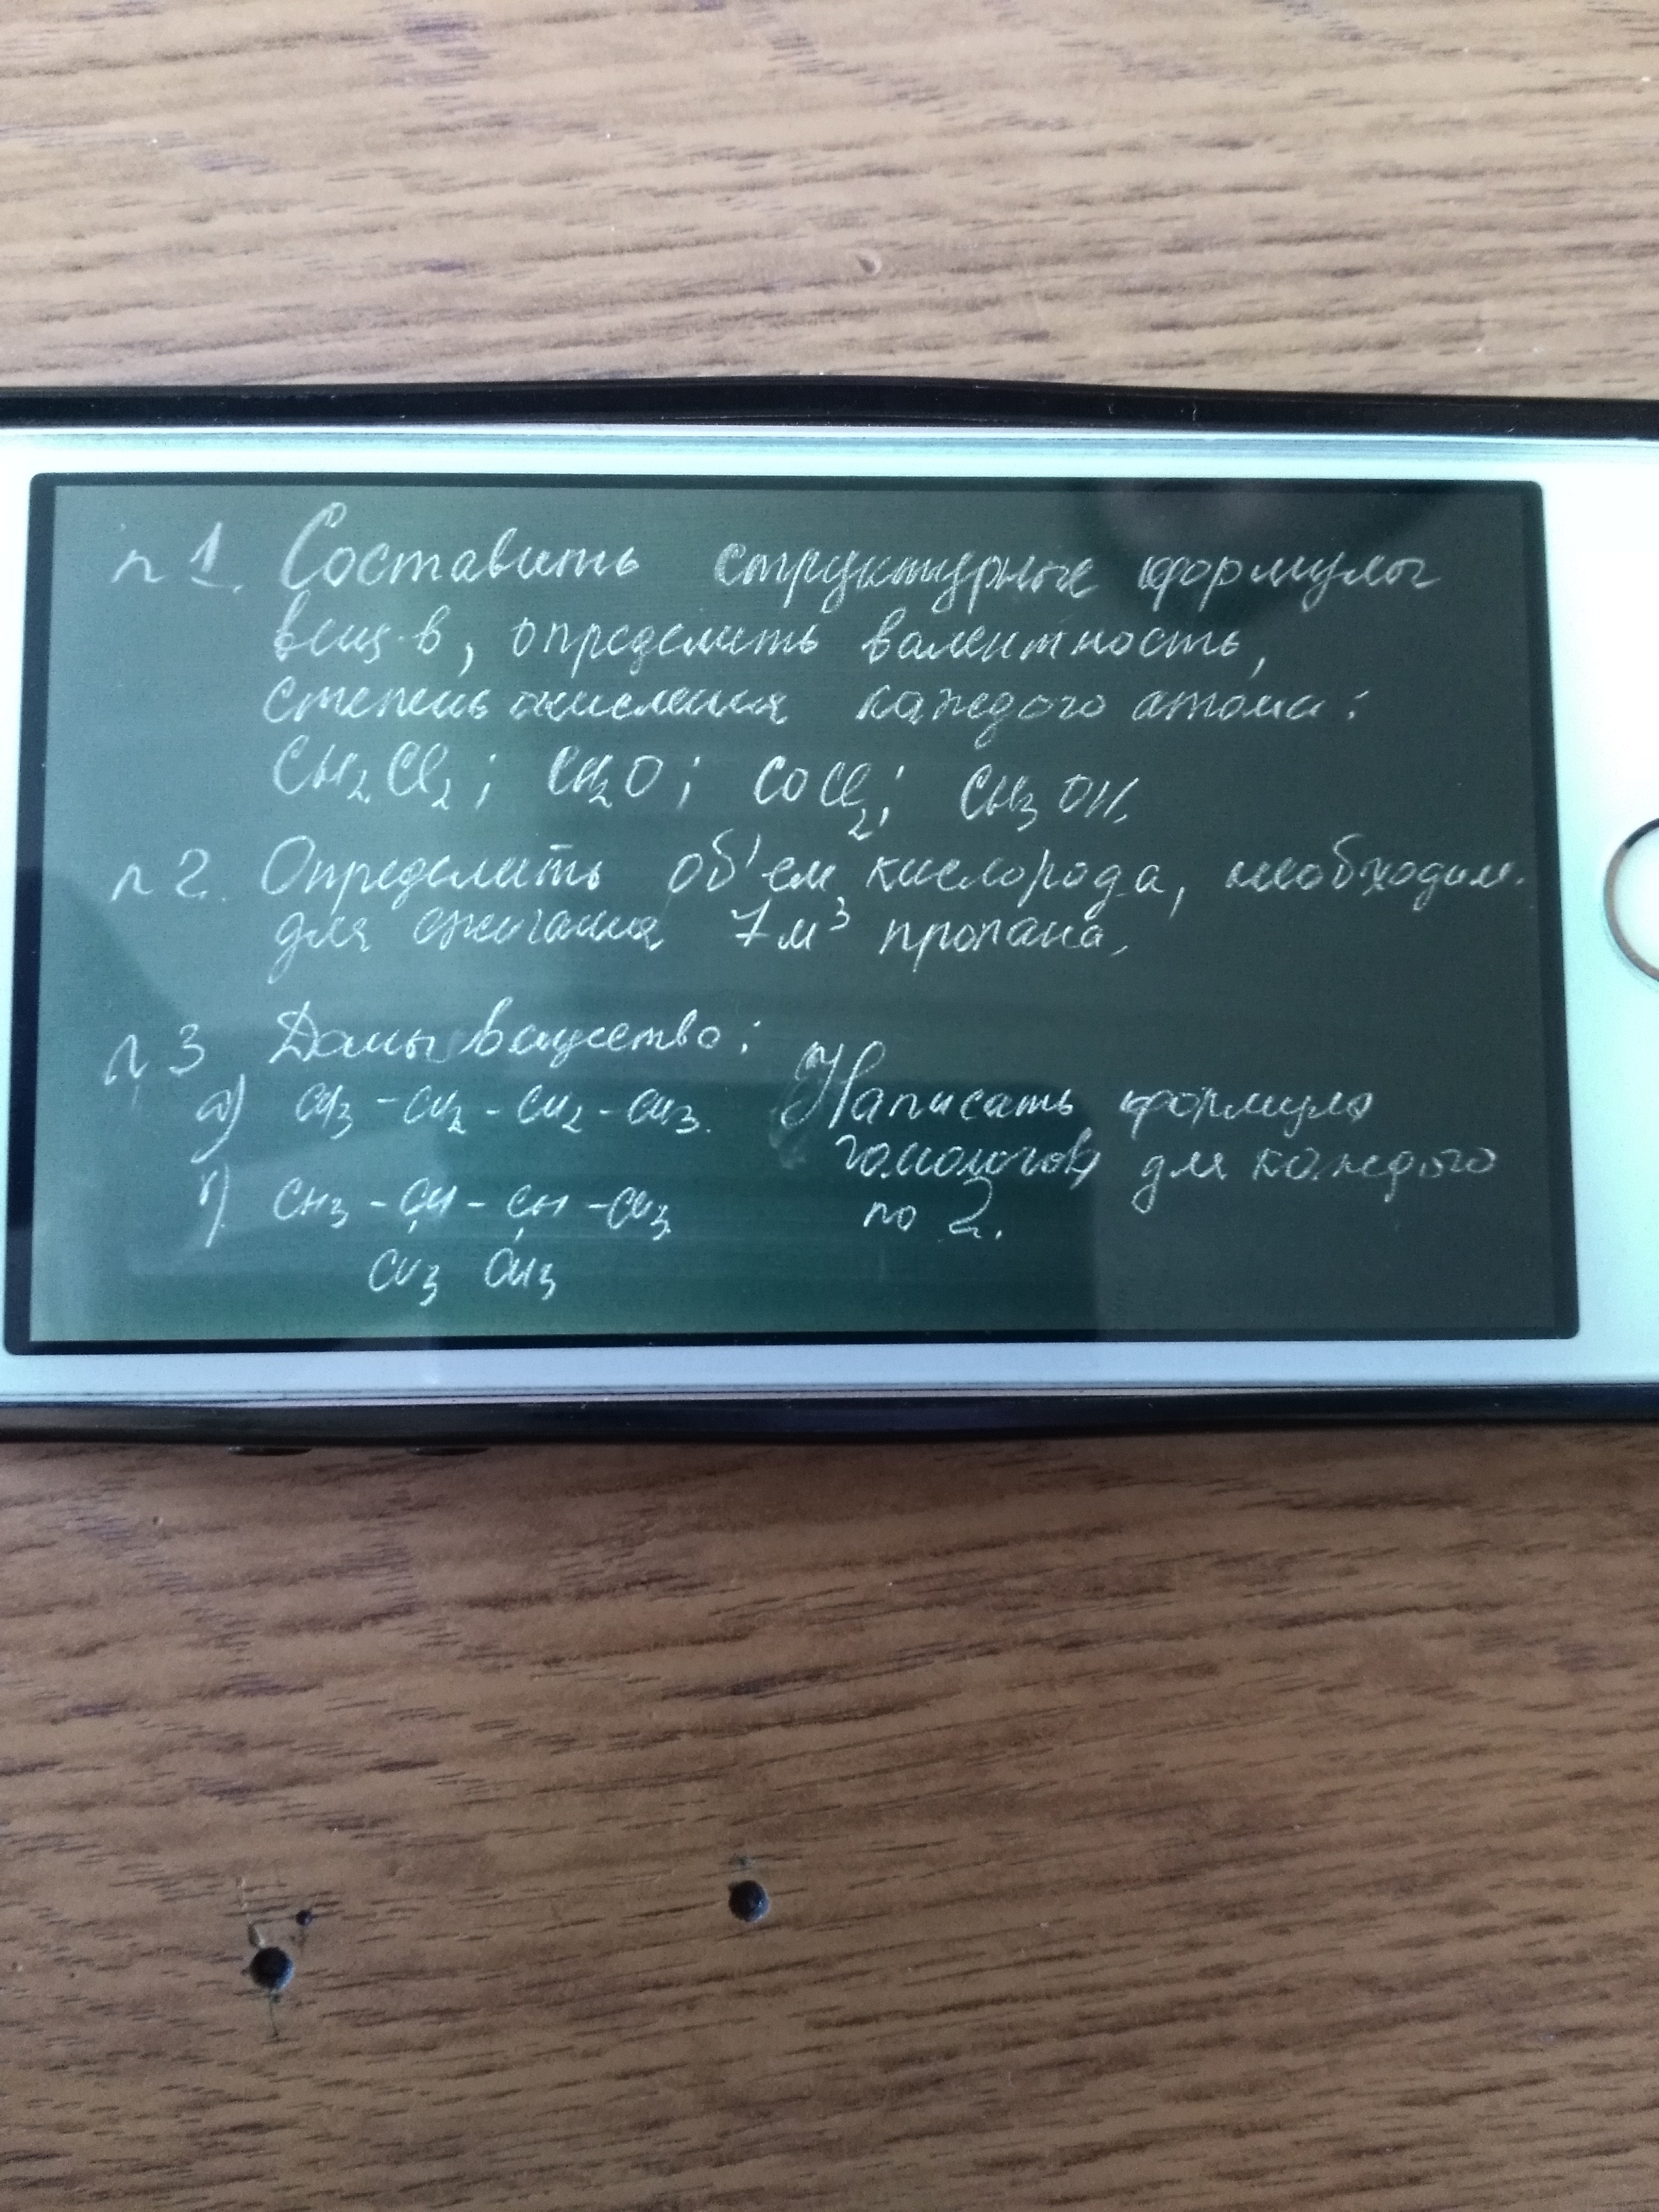 №1. Составить структурные формулы
вещ-в, определить валентность,
степень окисления каждого атома:
CH₂Cl₂; CH₂O; COCl₂; CH₃OH.
№2. Определить об'ем кислорода, необходим.
для сжигания 7м³ пропана.
№3 Даны вещество:
а) CH₃-CH₂-CH₂-CH₃. Написать формулы
гомологов для каждого
по 2.
б) CH₃-CH-CH-CH₃
CH₃ CH₃